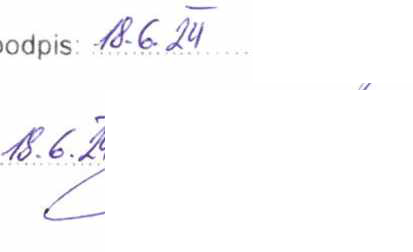 podpis: 18.6.24
18.6.24